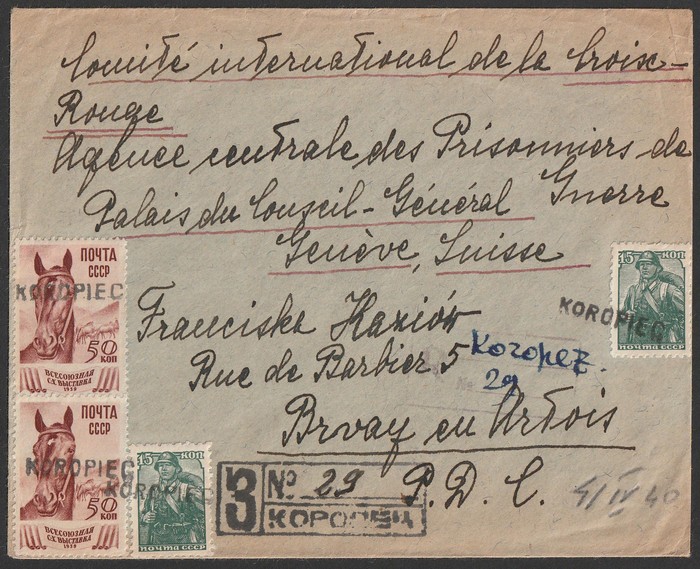 Comité international de la Croix-
Rouge
Agence centrale des Prisonniers de
Guerre
Palais du Conseil-Général
Genève, Suisse
Franciska Kaziów
Rue de Barbier 5
Brvay en Artois
P. D. C.
Koropez.
№ 29
4/IV 40
ПОЧТА
СССР
50
КОП
ВСЕСОЮЗНАЯ
С.Х. ВЫСТАВКА
1939
KOROPIEC
ПОЧТА
СССР
50
КОП
ВСЕСОЮЗНАЯ
С.Х. ВЫСТАВКА
1939
KOROPIEC
15 КОП
ПОЧТА СССР
KOROPIEC
15 КОП
ПОЧТА СССР
KOROPIEC
З № 29
КОРОПЕЦ